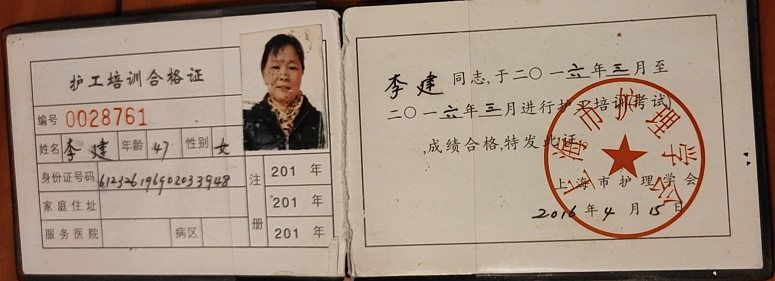 护工培训合格证
编号 0028761
姓名 李建 年龄 47 性别 女
身份证号码 612326196902033948
家庭住址
服务医院 病区
注册
201 年
201 年
201 年
李建 同志,于二〇一六年三月至
二〇一六年三月进行护工培训(考试)
,成绩合格,特发此证。
上海市护理学会
2016年4月15日
上海市护理学会